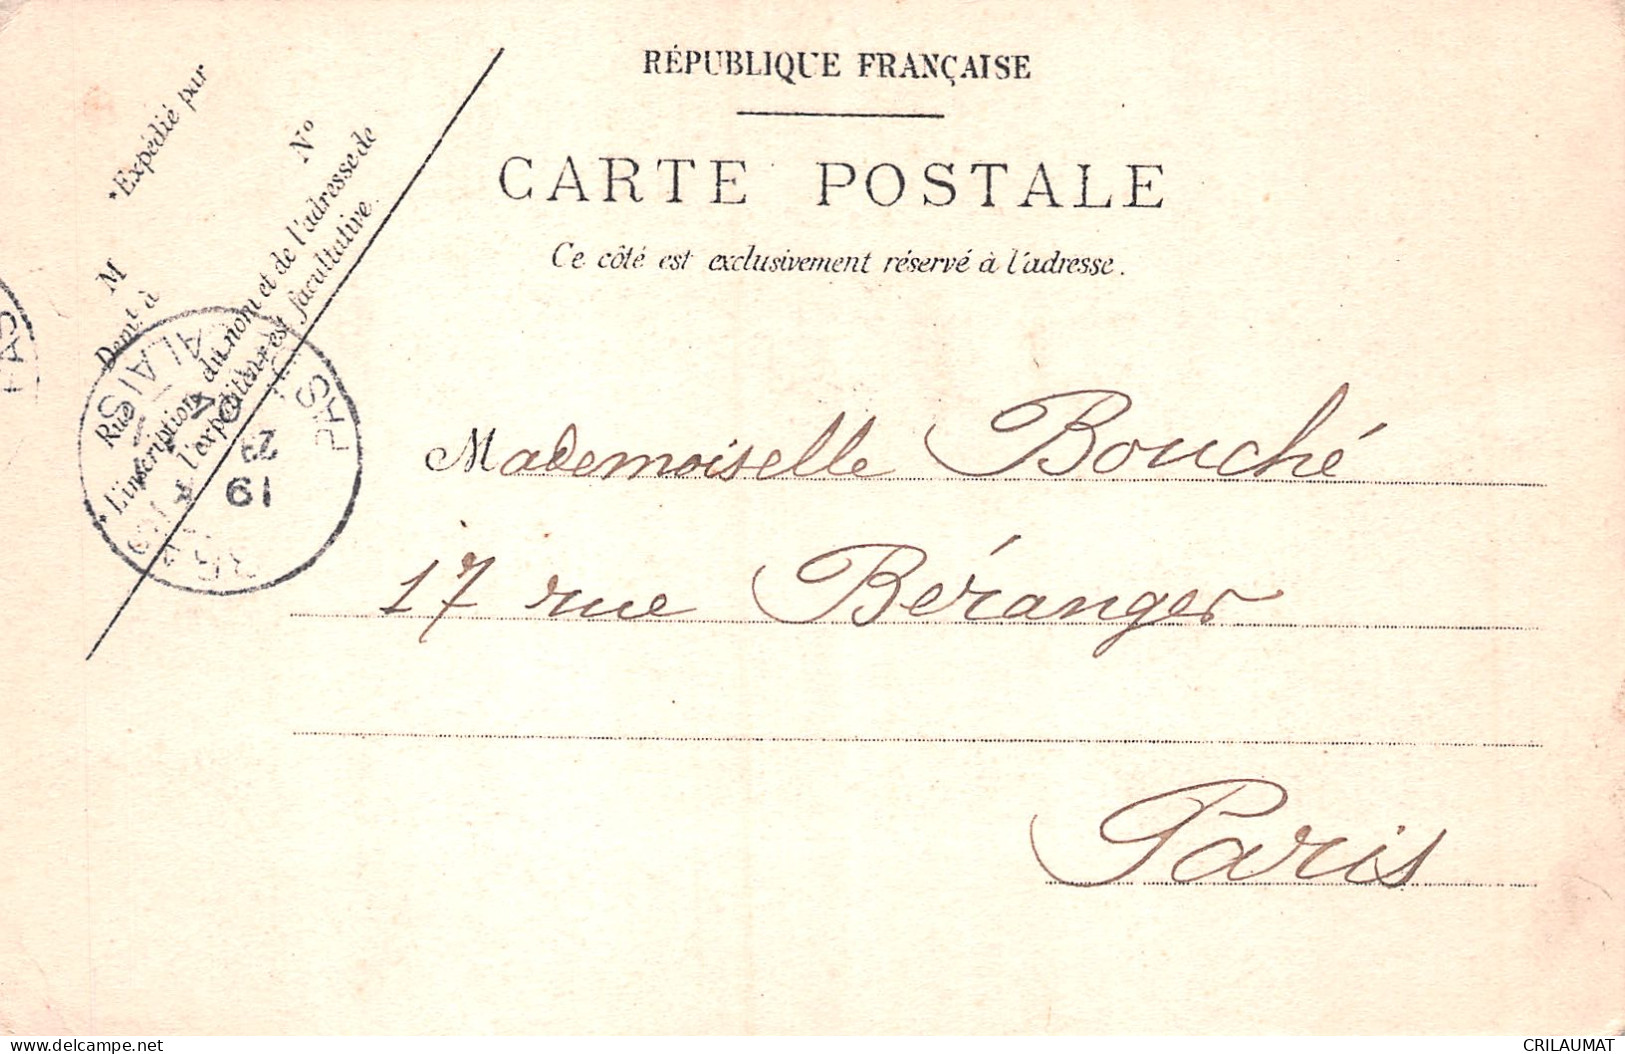 RÉPUBLIQUE FRANÇAISE
CARTE POSTALE
Ce côté est exclusivement réservé à l'adresse.
*Expédié par
M
Demt. à
Rue
No
* L'inscription du nom et de l'adresse de
l'expéditeur est facultative.
PAS
CALAIS
04
23
19
Mademoiselle Bouché
17 rue Béranger
Paris
CRILAUMAT